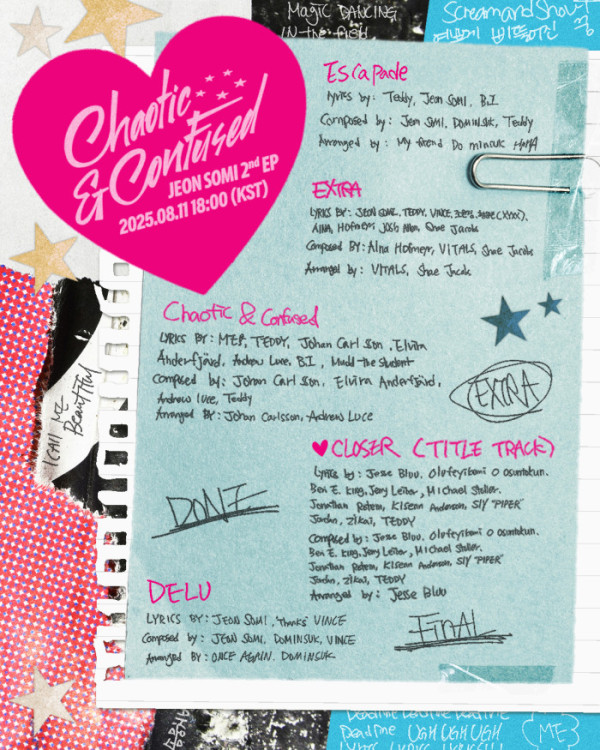 Magic DANCING
IN the field
Scream and Shout
Chaotic
& Confused
JEON SOMI 2nd EP
2025.08.11 18:00 (KST)
Escapade
Lyrics by: Teddy, Jeon SOMI, B.I
Composed by: Jeon SOMI, DOMINSUK, Teddy
Arranged by: My friend Do minsuk HAHA
EXTRA
LYRICS BY: JEON SOMI, TEDDY, VINCE,
AINA, Hofmeyr, Josh, Shae Jacob
Composed BY: Aina Hofmeyr, VITALS, Shae Jacob
Arranged by: VITALS, Shae Jacob
Chaotic & Confused
LYRICS BY: TEDDY, Johan Carlsson, Elvira
Anderfjärd, Andrew Luce, B.I, Mudd the Student
Composed by: Johan Carlsson, Elvira Anderfjärd,
Andrew Luce, Teddy
Arranged BY: Johan Carlsson, Andrew Luce
EXTRA
I CALL ME
Beautiful
♥ CLOSER (TITLE TRACK)
Lyrics by: Jesse Bluu, Olufeyibemi O Osuntokun.
Ben E. King, Jerry Leiber, Michael Stoller.
Jonathan Rotem, Kisean Anderson, SLY "PIPER"
Jordan, Zikai, TEDDY
Composed by: Jesse Bluu, Olufeyibemi O Osuntokun.
Ben E. King, Jerry Leiber, Michael Stoller.
Jonathan Rotem, Kisean Anderson, SLY "PIPER"
Jordan, Zikai, TEDDY
Arranged by: Jesse Bluu
DONE
DELU
LYRICS BY: JEON SOMI, "thanks" VINCE
Composed by: JEON SOMI, DOMINSUK, VINCE
Arranged BY: ONCE AGAIN, DOMINSUK
FINAL
Deadline Deadline Deadline
Deadline UGH UGH UGH
(ME)